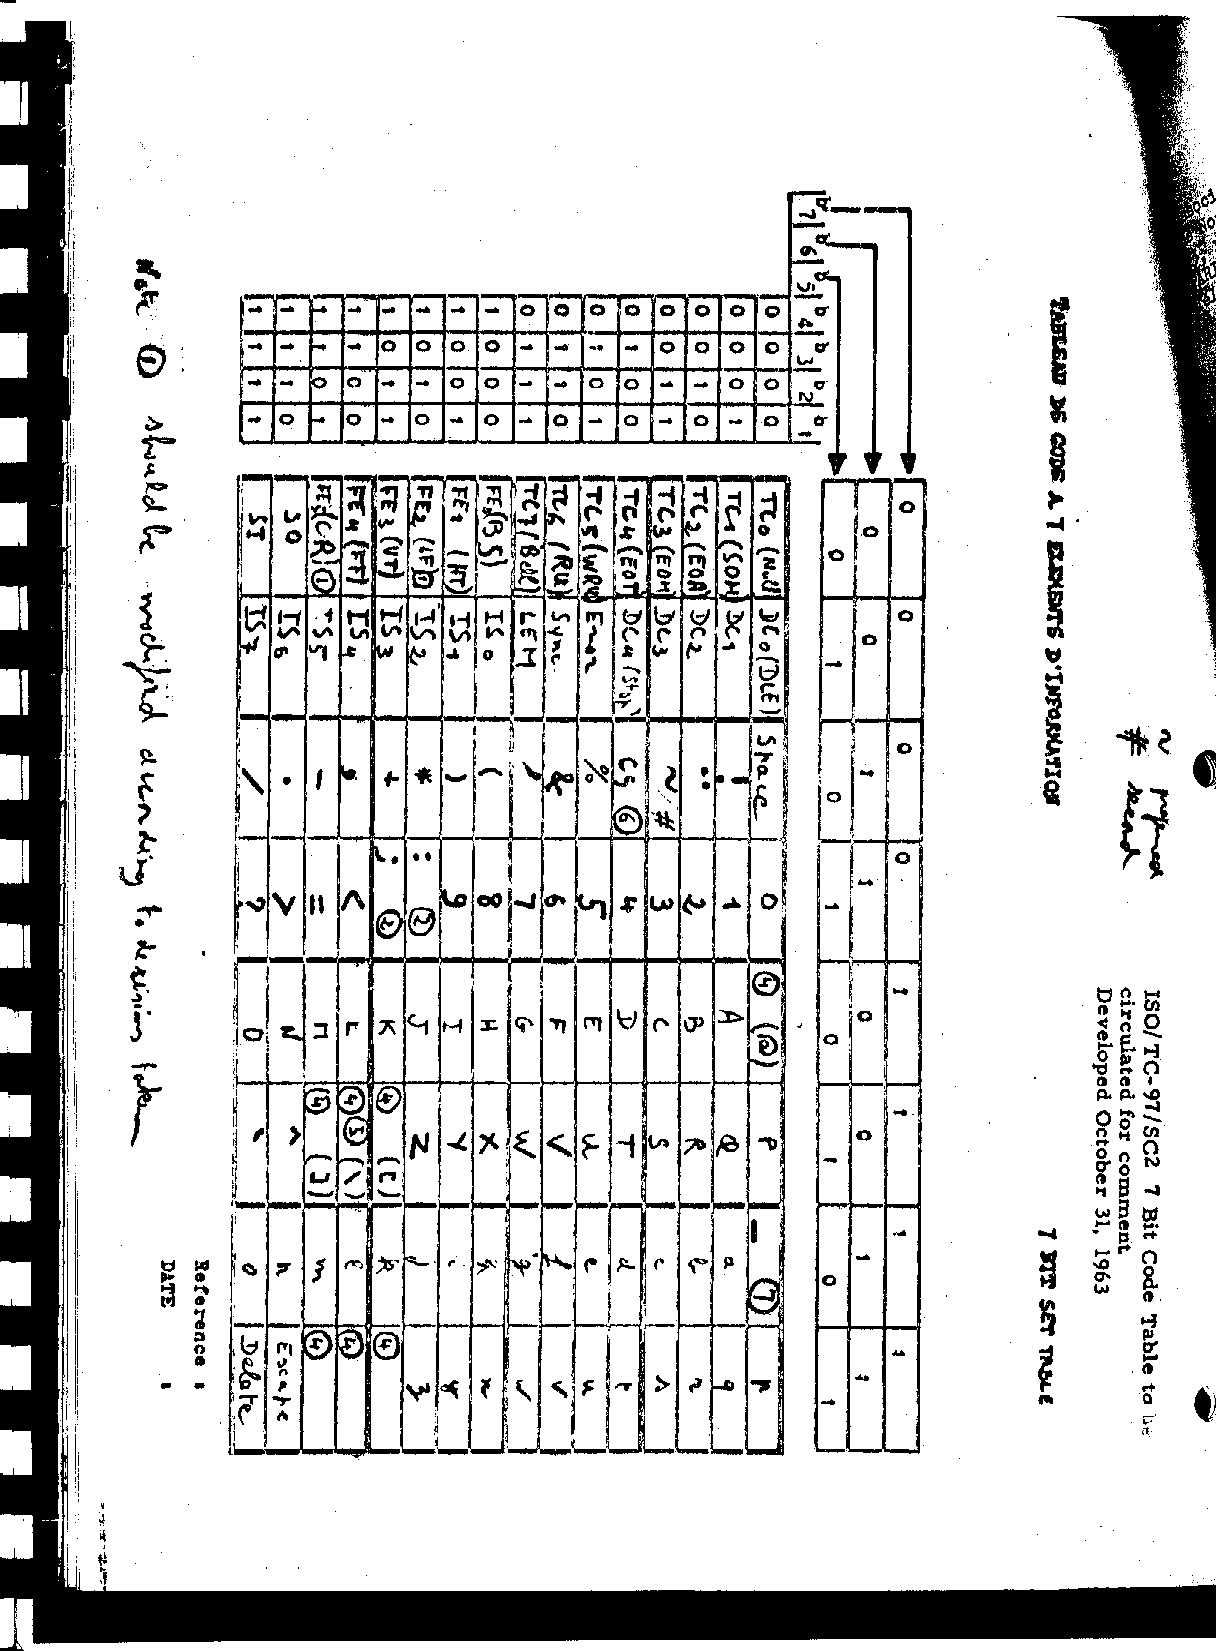 ISO/TC-97/SC2 7 Bit Code Table to be
circulated for comment
Developed October 31, 1963
~
# second
TABLEAU DE CODE A 7 ELEMENTS D'INFORMATION
7 BIT SET TABLE
0 0 0 0 1 1 1 1
0 0 1 1 0 0 1 1
0 1 0 1 0 1 0 1
b7 b6 b5 b4 b3 b2 b1
0 0 0 0 TC0 (Null) DC0 (DLE) Space 0 ④ (@) P _ ⑦ p
0 0 0 1 TC1 (SOM) DC1 ! 1 A Q a q
0 0 1 0 TC2 (EOA) DC2 " 2 B R b r
0 0 1 1 TC3 (EOM) DC3 ~/# 3 C S c s
0 1 0 0 TC4 (EOT) DC4 (Stop) C5 ⑥ 4 D T d t
0 1 0 1 TC5 (WRU) Error % 5 E U e u
0 1 1 0 TC6 (RU) Sync & 6 F V f v
0 1 1 1 TC7 (Bell) LEM ' 7 G W g w
1 0 0 0 FE0 (BS) IS0 ( 8 H X h x
1 0 0 1 FE1 (HT) IS1 ) 9 I Y i y
1 0 1 0 FE2 (LF) ① IS2 * : ② J Z j z
1 0 1 1 FE3 (VT) IS3 + ; ② K ④ ([) k ④
1 1 0 0 FE4 (FF) IS4 , < L ④ ⑤ (\) l ④
1 1 0 1 FE5 (CR) ① IS5 - = M ④ (]) m ④
1 1 1 0 SO IS6 . > N ^ n Escape
1 1 1 1 SI IS7 / ? O ` o Delete
Reference :
DATE :
Note ① should be modified according to decision taken